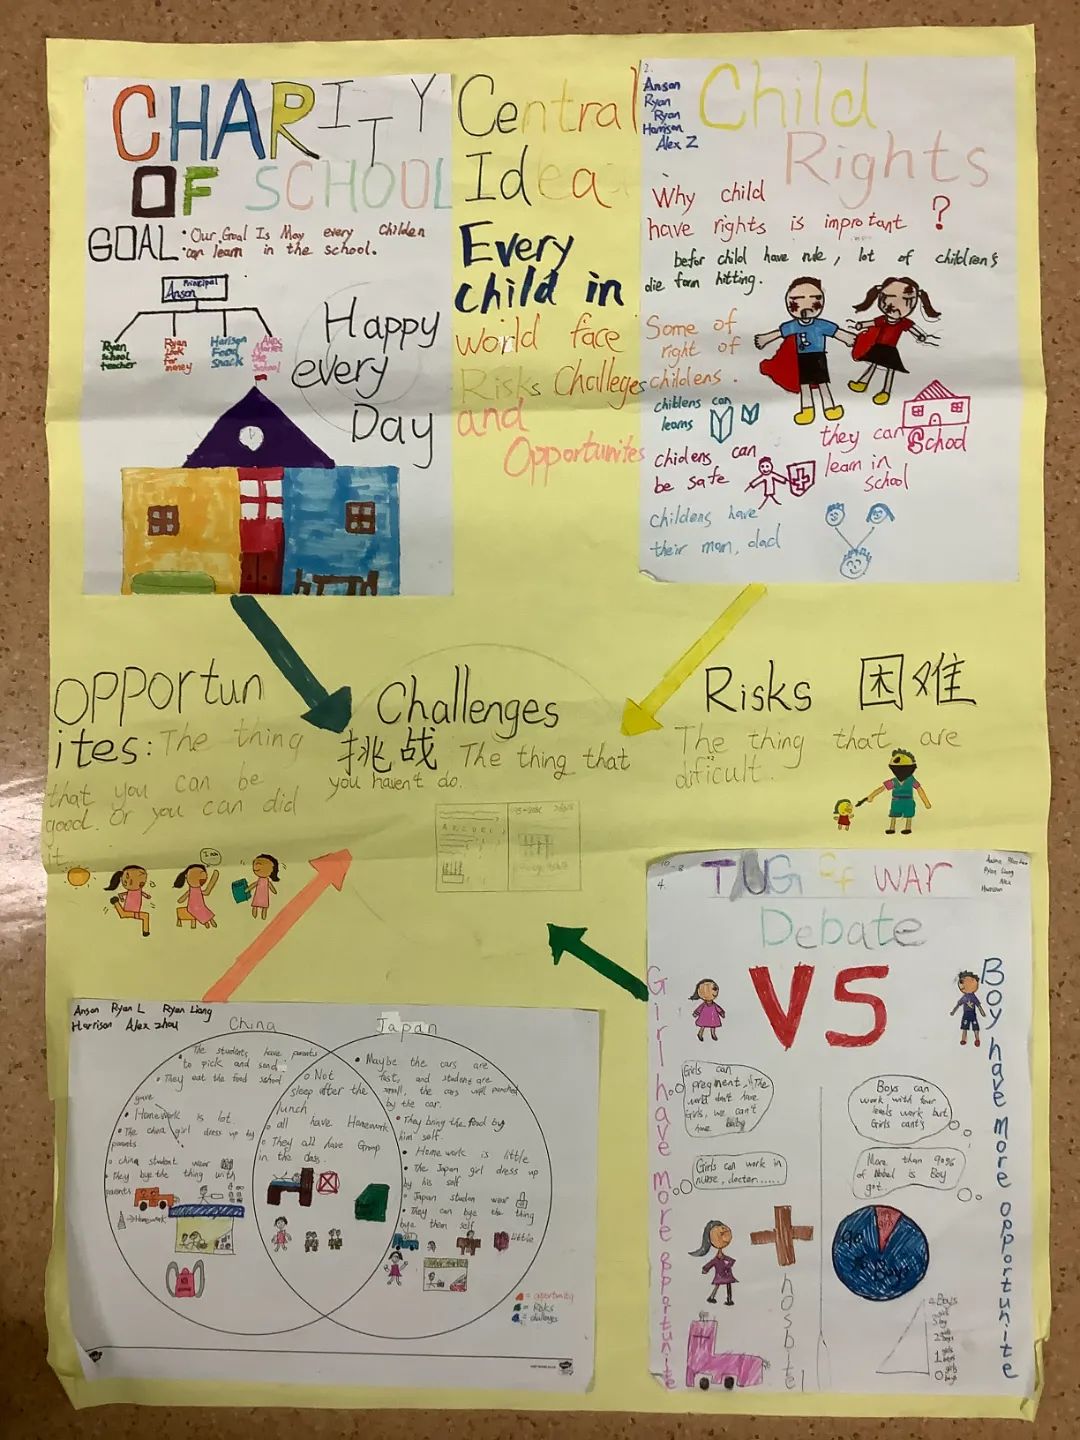 CHARITY
OF SCHOOL
GOAL
• Our Goal Is May every children
• can learn in the school.
Principal
Anson
Ryan
school
teacher
Ryan
for
money
Harison
Food
snack
school
Happy
every
Day
Central
Idea
Every
child in
world face
Risks Challeges
and
Opportunites
2.
Anson
Ryan
Ryan
Harrison
Alex Z
Child
Rights
Why child
have rights is improtant ?
befor child have rule, lot of children's
die form hitting.
Some of
right of
childens.
childens can
learns
chidens can
be safe
they can
learn in
school
School
childens have
their mom, dad
OPPortun
ites: The thing
that you can be
good. Or you can did
it.
I can
Challenges
挑战 The thing that
you haven't do.
Risks 困难
The thing that are
dificult.
Anson Ryan L Ryan Liang
Harrison Alex zhou
China
Japan
• The students have parents
to pick and send
• They eat the food school
gave
• Homework is lot.
• The china girl dress up by
parents
• china student wear
• They bye the thing with
parents
→ Homework
Not
sleep after the
lunch
all have Homework
They all have Group
in the class.
• Maybe the cars are
fast, and students are
small, the cars
by the car.
• They bring the food by
him self.
• Home work is little
• The Japan girl dress up
by his self
• Japan studen wear
• They can bye the thing
bye them self
little
= opportunity
= Risks
= challenges
4.
TUG of WAR
Ryan Liang
Alex
Harrison
Debate
VS
Girl have more opportunite
Boy have more opportunite
Girls can
pregnent, The
world don't have
Girls, we can't
have baby
Boys can
work with four
levels work but
Girls cant's
Girls can work in
nurse, docter......
More than 90%
of Nobel is Boy
got
Boys
hosbite
4 Boys
3
2
1
0